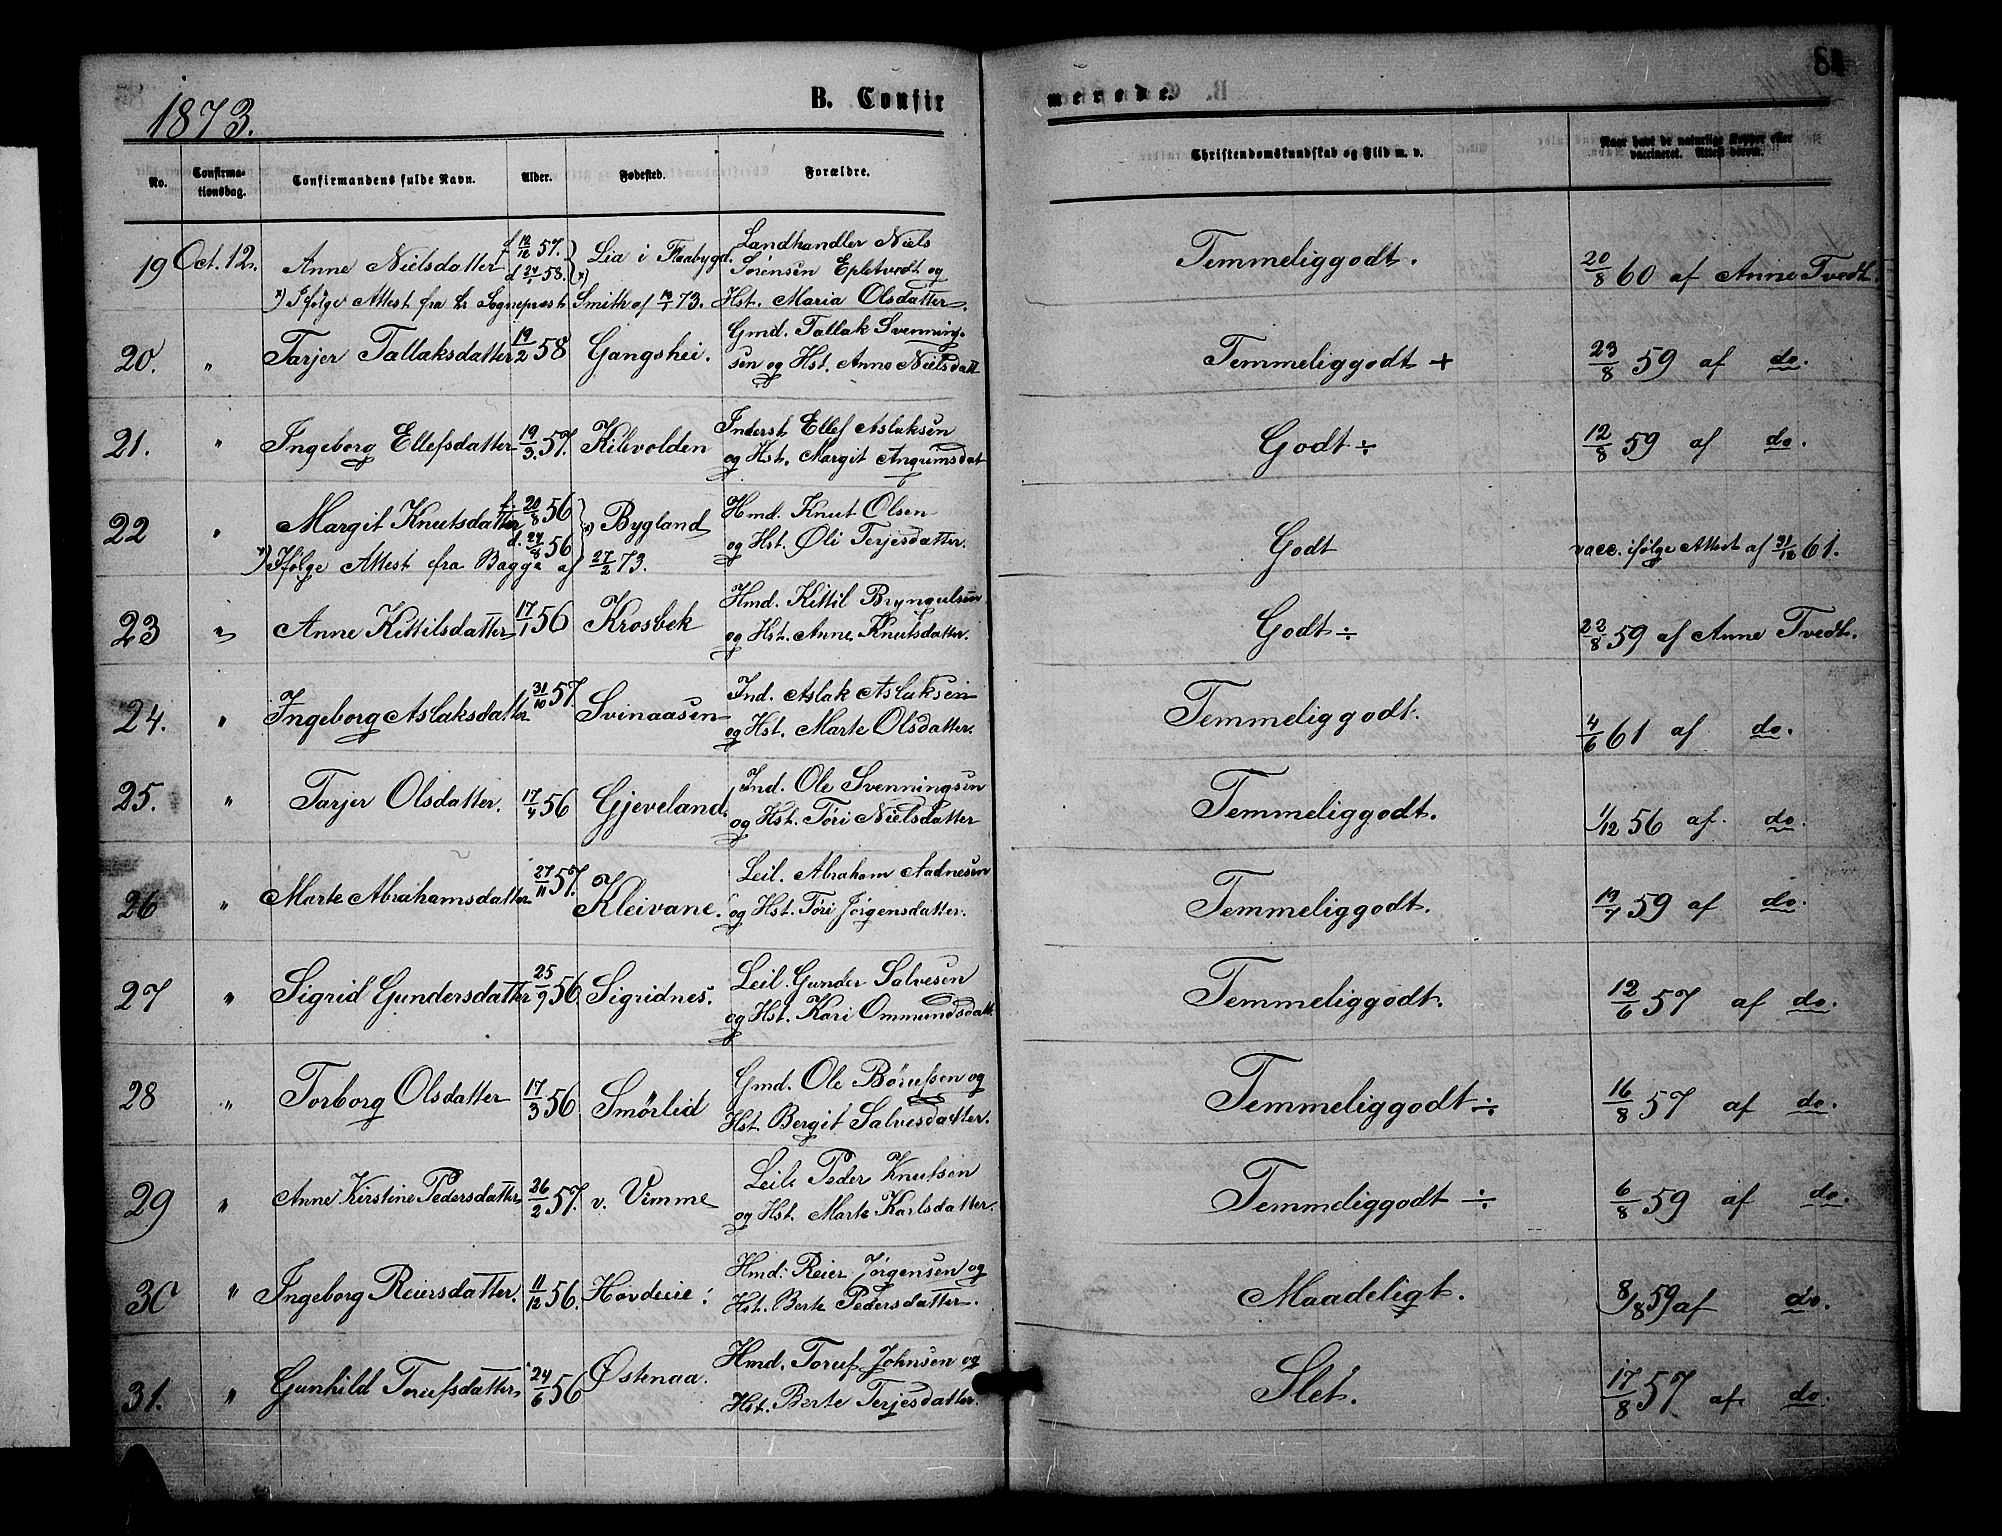 1873.
B. Confir
merede.
84
No.
Confirma-
tionsdag.
Confirmandens fulde Navn.
Alder.
Fødested.
Forældre.
Christendomskundskab og Flid m. v.
Naar havt de naturlige Kopper eller
vaccineret. Attest derom.
19 Oct. 12. Anne Nielsdatter f 12/12 57. d 24/1 58. *) Lia i Flaabygd. Landhandler Niels
Sørensen Epletvedt og
Hst. Maria Olsdatter. Temmeliggodt. 20/8 60 af Anne Tvedt.
*) Ifølge Attest fra hr Sognepræst Smith af 73.
20. " Tarjer Tallaksdatter 19/2 58 Gangshei. Gmd. Tallak Svenning-
sen og Hst. Anne Nielsdatt Temmeliggodt + 23/8 59 af do.
21. " Ingeborg Ellefsdatter 19/3. 57. Kilevolden Inderst Ellef Aslaksen
og Hst. Margit Angrimsdat Godt ÷ 12/8 59 af do.
22 " Margit Knutsdatter f. 20/8 56 d. 24/8 56 *) Bygland Hmd. Knut Olsen
og Hst. Oli Terjesdatter. Godt vacc. ifølge Attest af 31/12 61.
*) Ifølge Attest fra Bagge af 27/2 73.
23 " Anne Kittilsdatter 17/1 56 Krosbek Hmd. Kittil Bryngulsen
og Hst. Anne Knutsdatter. Godt ÷ 22/8 59 af Anne Tvedt.
24. " Ingeborg Aslaksdatter 31/10 57. Svinaasen Ind. Aslak Aslaksen
og Hst. Marte Olsdatter. Temmeliggodt. 4/6 61 af do.
25. " Tarjer Olsdatter. 17/4 56 Gjeveland. Ind. Ole Svenningsen
og Hst. Tøri Nielsdatter Temmeliggodt. 1/12 56 af. do.
26 " Marte Abrahamsdatter 27/11 57. Kleivane. Leil. Abraham Aadnesen
og Hst. Tøri Jørgensdatter. Temmeliggodt. 19/7 59 af do.
27 " Sigrid Gundersdatter 25/9 56 Sigridnes. Leil. Gunder Salvesen
og Hst. Kari Ommundsdatt. Temmeliggodt. 12/6 57 af do.
28 " Torborg Olsdatter 17/3 56 Smørlid Gmd. Ole Børufsen og
Hst. Bergit Salvesdatter. Temmeliggodt ÷ 16/8 57 af do.
29 " Anne Kirstine Pedersdatter 26/2 57. v. Vimme Leil. Peder Knutsen
og Hst. Marte Karlsdatter. Temmeliggodt ÷ 6/8 59 af do.
30 " Ingeborg Reiersdatter. 11/12 56. Hovdeeie. Hmd. Reier Jørgensen og
Hst. Berte Pedersdatter. Maadeligt. 8/8 59 af do.
31. " Gunhild Torufsdatter 24/6 56 Østenaa. Hmd. Toruf Johnsen og
Hst. Berte Terjesdatter. Slet. 17/8 57 af. do.